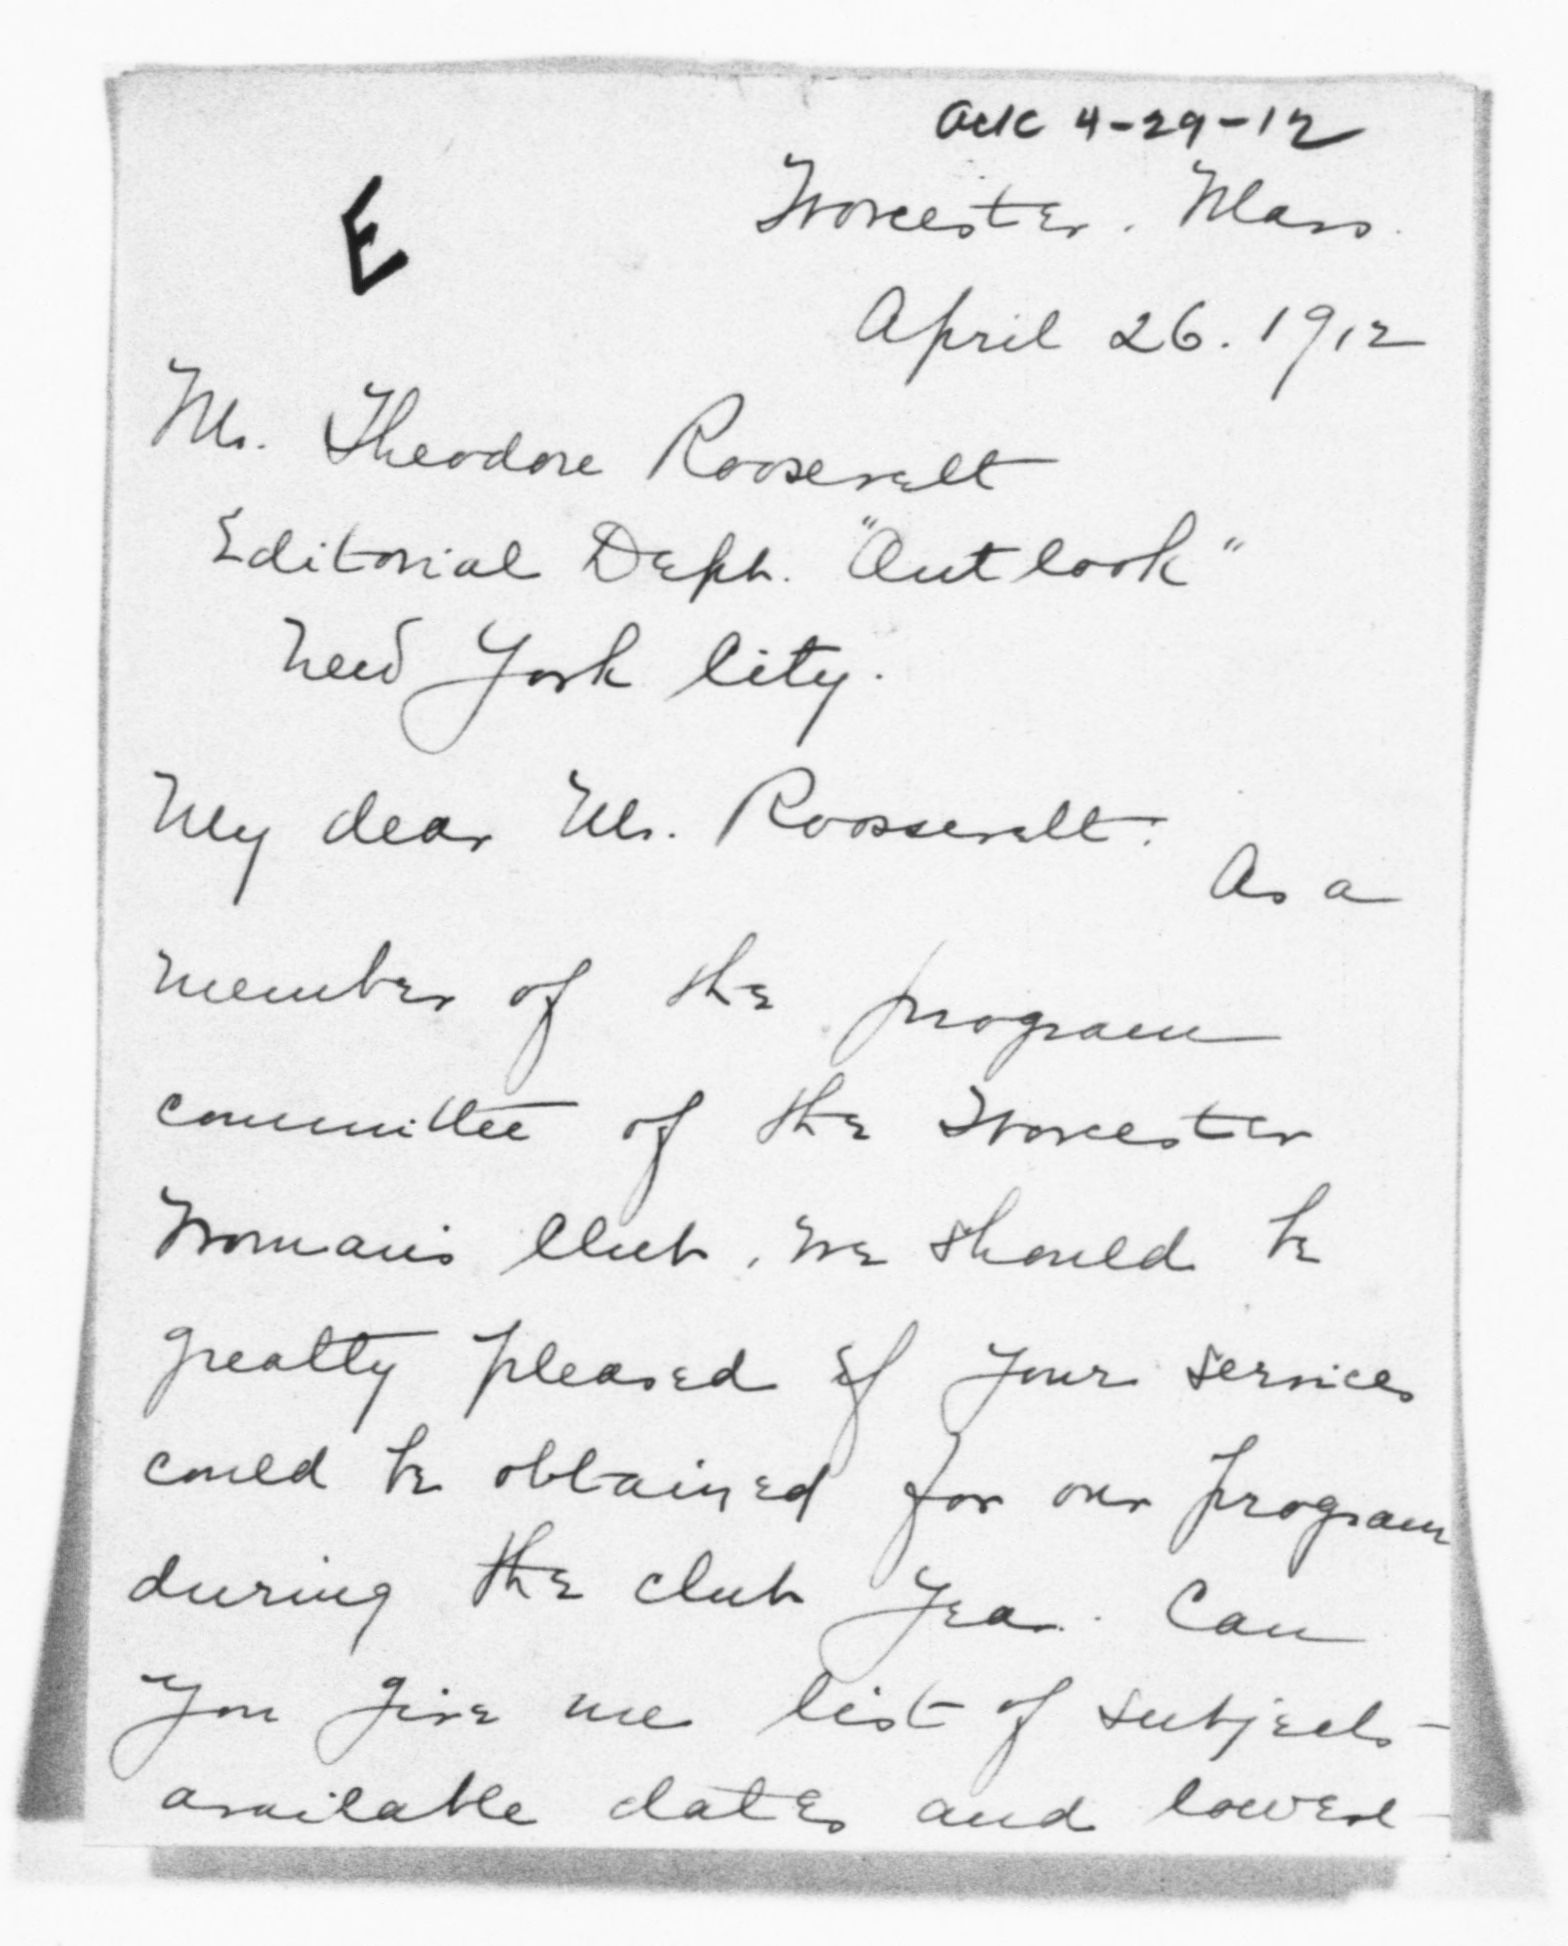 Ack 4-29-12
E
Worcester. Mass.
April 26. 1912
Mr. Theodore Roosevelt
Editorial Dept. "Outlook"
New York City.
My dear Mr. Roosevelt:
As a
member of the program
committee of the Worcester
Woman's Club, we should be
greatly pleased if your services
could be obtained for our program
during the club year. Can
you give me list of subjects -
available dates and lowest